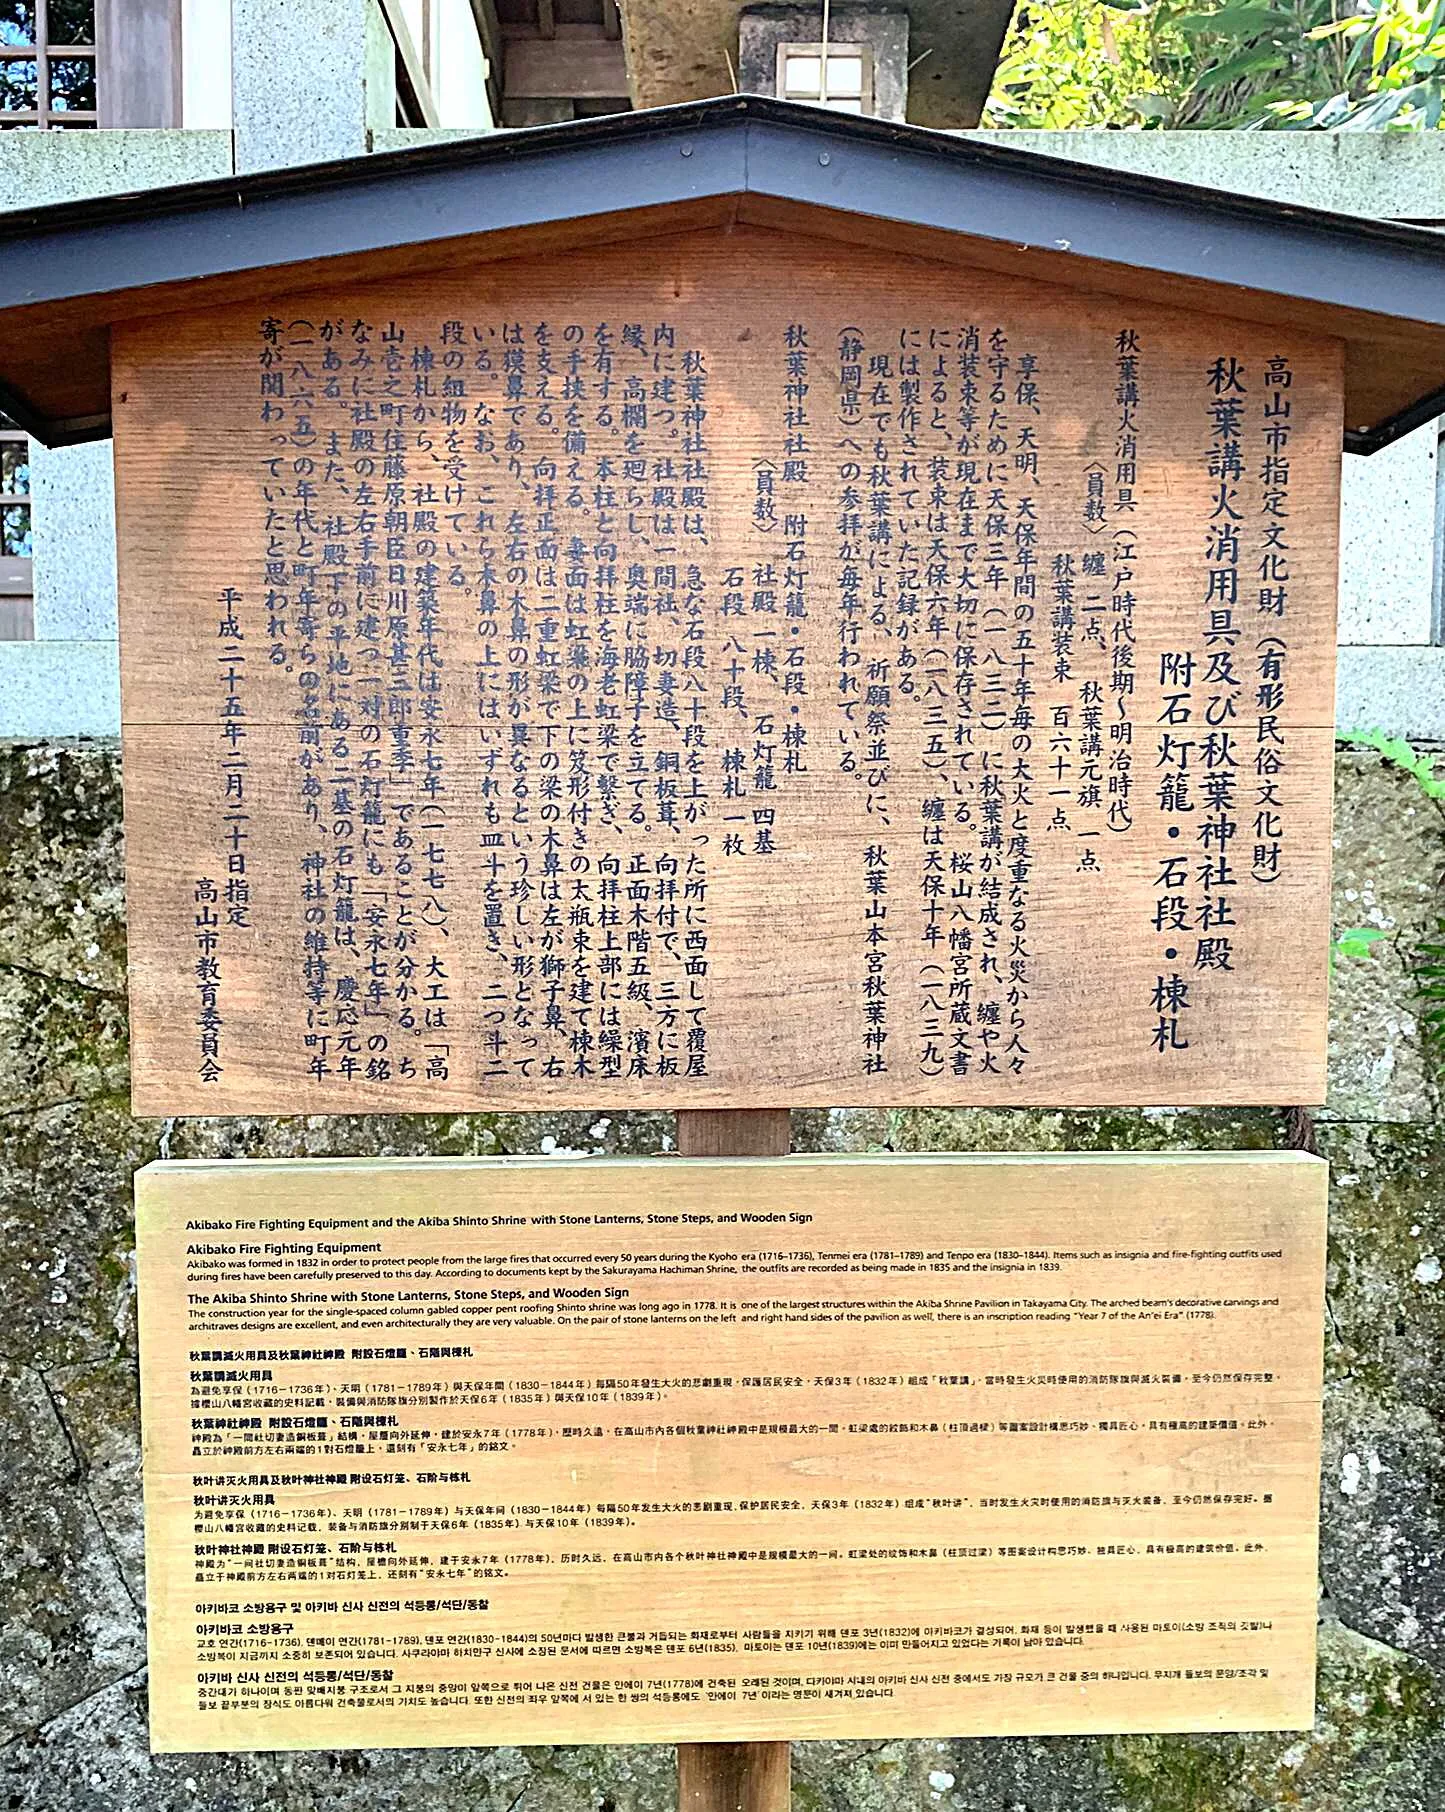 高山市指定文化財（有形民俗文化財）
秋葉講火消用具及び秋葉神社社殿
附石灯籠・石段・棟札
秋葉講火消用具（江戸時代後期～明治時代）
〈員数〉 纏 二点、 秋葉講元旗 一点
秋葉講装束 百六十一点
享保、天明、天保年間の五十年毎の大火と度重なる火災から人々
を守るために天保三年（一八三二）に秋葉講が結成され、纏や火
消装束等が現在まで大切に保存されている。桜山八幡宮所蔵文書
によると、装束は天保六年（一八三五）、纏は天保十年（一八三九）
には製作されていた記録がある。
現在でも秋葉講による、祈願祭並びに、秋葉山本宮秋葉神社
（静岡県）への参拝が毎年行われている。
秋葉神社社殿 附石灯籠・石段・棟札
〈員数〉 社殿 一棟、 石灯籠 四基
石段 八十段、 棟札 一枚
秋葉神社社殿は、急な石段八十段を上がった所に西面して覆屋
内に建つ。社殿は一間社、切妻造、銅板葺、向拝付で、三方に板
縁、高欄を廻らし、奥端に脇障子を立てる。正面木階五級、濱床
を有する。本柱と向拝柱を海老虹梁で繋ぎ、向拝柱上部には繰型
の手挟を備える。妻面は虹梁の上に笈形付きの太瓶束を建て棟木
を支える。向拝正面は二重虹梁で下の梁の木鼻は左が獅子鼻、右
は獏鼻であり、左右の木鼻の形が異なるという珍しい形となって
いる。なお、これら木鼻の上にはいずれも皿斗を置き、二つ斗二
段の組物を受けている。
棟札から、社殿の建築年代は安永七年（一七七八）、大工は「高
山壱之町住藤原朝臣日川原甚三郎重季」であることが分かる。ち
なみに社殿の左右手前に建つ一対の石灯籠にも「安永七年」の銘
がある。また、社殿下の平地にある二基の石灯籠は、慶応元年
（一八六五）の年代と町年寄らの名前があり、神社の維持等に町年
寄が関わっていたと思われる。
平成 二十五年二月二十日指定
高山市教育委員会
Akibako Fire Fighting Equipment and the Akiba Shinto Shrine with Stone Lanterns, Stone Steps, and Wooden Sign
Akibako Fire Fighting Equipment
Akibako was formed in 1832 in order to protect people from the large fires that occurred every 50 years during the Kyoho era (1716–1736), Tenmei era (1781–1789) and Tenpo era (1830–1844). Items such as insignia and fire-fighting outfits used
during fires have been carefully preserved to this day. According to documents kept by the Sakurayama Hachiman Shrine, the outfits are recorded as being made in 1835 and the insignia in 1839.
The Akiba Shinto Shrine with Stone Lanterns, Stone Steps, and Wooden Sign
The construction year for the single-spaced column gabled copper pent roofing Shinto shrine was long ago in 1778. It is one of the largest structures within the Akiba Shrine Pavilion in Takayama City. The arched beam's decorative carvings and
architraves designs are excellent, and even architecturally they are very valuable. On the pair of stone lanterns on the left and right hand sides of the pavilion as well, there is an inscription reading "Year 7 of the An'ei Era" (1778).
秋葉講滅火用具及秋葉神社神殿 附設石燈籠、石階與棟札
秋葉講滅火用具
為避免享保（1716－1736年）、天明（1781－1789年）與天保年間（1830－1844年）每隔50年發生大火的悲劇重現，保護居民安全，天保3年（1832年）組成「秋葉講」，當時發生火災時使用的消防隊旗與滅火裝備，至今仍然保存完整。
據櫻山八幡宮收藏的史料記載，裝備與消防隊旗分別製作於天保6年（1835年）與天保10年（1839年）。
秋葉神社神殿 附設石燈籠、石階與棟札
神殿為「一間社切妻造銅板葺」結構，屋簷向外延伸，建於安永7年（1778年），歷時久遠，在高山市內各個秋葉神社神殿中是規模最大的一間。虹梁處的紋飾和木鼻（柱頂過樑）等圖案設計構思巧妙、獨具匠心，具有極高的建築價值。此外，
矗立於神殿前方左右兩端的1對石燈籠上，還刻有「安永七年」的銘文。
秋叶讲灭火用具及秋叶神社神殿 附设石灯笼、石阶与栋札
秋叶讲灭火用具
为避免享保（1716－1736年）、天明（1781－1789年）与天保年间（1830－1844年）每隔50年发生大火的悲剧重现，保护居民安全，天保3年（1832年）组成“秋叶讲”，当时发生火灾时使用的消防旗与灭火装备，至今仍然保存完好。据
樱山八幡宫收藏的史料记载，装备与消防旗分别制于天保6年（1835年）与天保10年（1839年）。
秋叶神社神殿 附设石灯笼、石阶与栋札
神殿为“一间社切妻造铜板葺”结构，屋檐向外延伸，建于安永7年（1778年），历时久远，在高山市内各个秋叶神社神殿中是规模最大的一间。虹梁处的纹饰和木鼻（柱顶过梁）等图案设计构思巧妙、独具匠心，具有极高的建筑价值。此外，
矗立于神殿前方左右两端的1对石灯笼上，还刻有“安永七年”的铭文。
아키바코 소방용구 및 아키바 신사 신전의 석등롱/석단/동찰
아키바코 소방용구
교호 연간(1716-1736), 덴메이 연간(1781-1789), 덴포 연간(1830-1844)의 50년마다 발생한 큰불과 거듭되는 화재로부터 사람들을 지키기 위해 덴포 3년(1832)에 아키바코가 결성되어, 화재 등이 발생했을 때 사용된 마토이(소방 조직의 깃발)나
소방복이 지금까지 소중히 보존되어 있습니다. 사쿠라야마 하치만구 신사에 소장된 문서에 따르면 소방복은 덴포 6년(1835), 마토이는 덴포 10년(1839)에는 이미 만들어지고 있었다는 기록이 남아 있습니다.
아키바 신사 신전의 석등롱/석단/동찰
중간대기 하나이며 동판 맞배지붕 구조로서 그 지붕의 중앙이 앞쪽으로 튀어 나온 신전 건물은 안에이 7년(1778)에 건축된 오래된 것이며, 다카야마 시내의 아키바 신사 신전 중에서도 가장 규모가 큰 건물 중의 하나입니다. 무지개 들보의 문양/조각 및
들보 끝부분의 장식도 아름다워 건축물로서의 가치도 높습니다. 또한 신전의 좌우 앞쪽에 서 있는 한 쌍의 석등롱에도 '안에이 7년'이라는 명문이 새겨져 있습니다.